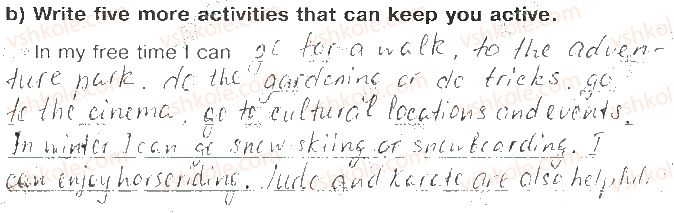 b) Write five more activities that can keep you active.
In my free time I can go for a walk, to the adven-
ture park. do the gardening or do tricks. go
to the cinema, go to cultural locations and events.
In winter I can go snow skiing or snowboarding. I
can enjoy horseriding. Judo and karate are also helpful.